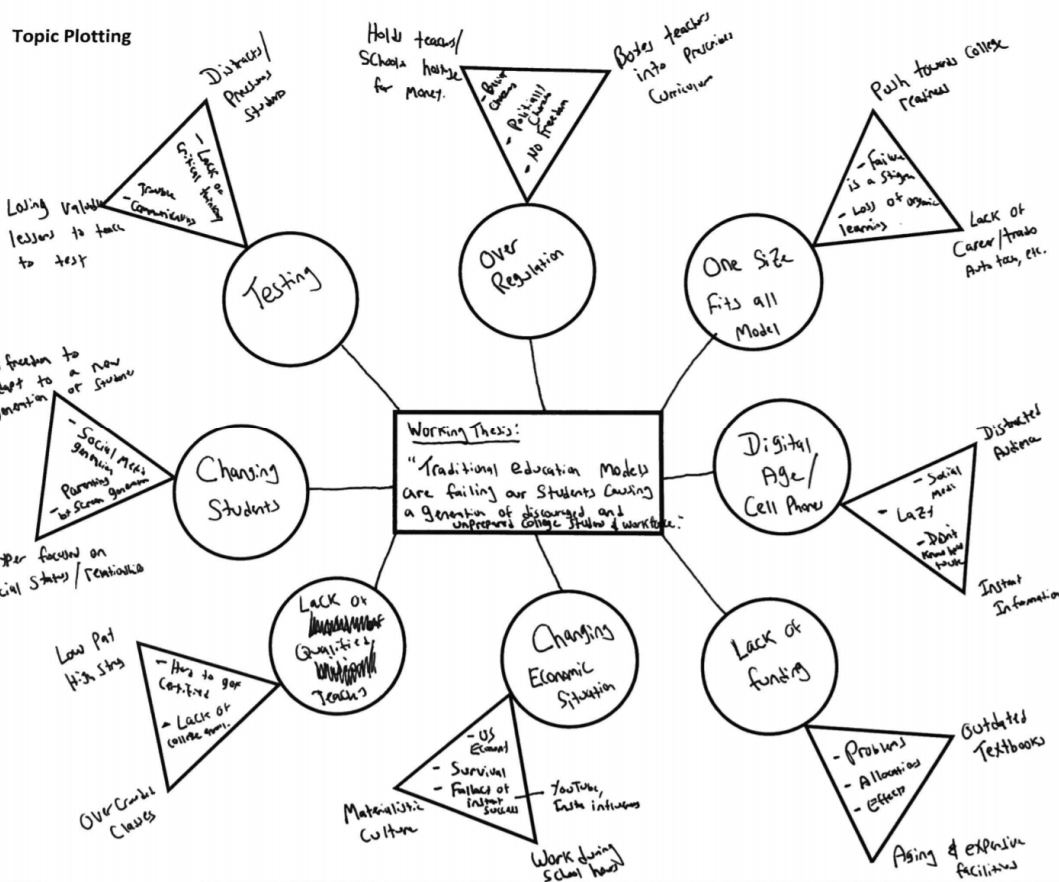 Topic Plotting
Distracts/
Pressures
Students
- Lack of
critical thinking
- Trouble
communicating
Losing valuable
lessons to teach
to test
Testing
Holds teachers/
Schools hostage
for money.
- Politically
- No Freedom
Boxes teachers
into Prescribed
Curriculum
Over
Regulation
Push towards College
readiness
- Failure
is a stigma
- Loss of organic
learning.
Lack of
Career/trade
Auto tech, etc.
One Size
Fits all
Model
freedom to
to a new
generation of Student
- Social Media
generation
- Parenting
by Screen generation
focused on
Status/relationships
Changing
Students
Working Thesis:
"Traditional education Models
are failing our Students Causing
a generation of discouraged and
unprepared college Student & workforce."
Digital
Age/
Cell Phones
Distracted
- Social
Medi
- Lazy
- Don't
know how
to use
Instant
Information
Low Pay
High Stress
- Hard to get
Certified
- Lack of
college
Over Crowded
Classes
Lack of
Qualified
Teachers
Changing
Economic
Situation
- US
Economy
- Survival
- Fallacy of
instant
success
YouTube,
Insta influencers
Materialistic
Culture
Work during
School hours
Lack of
funding
- Problems
- Allocation
- Effects
Outdated
Textbooks
Aging & expensive
facilities